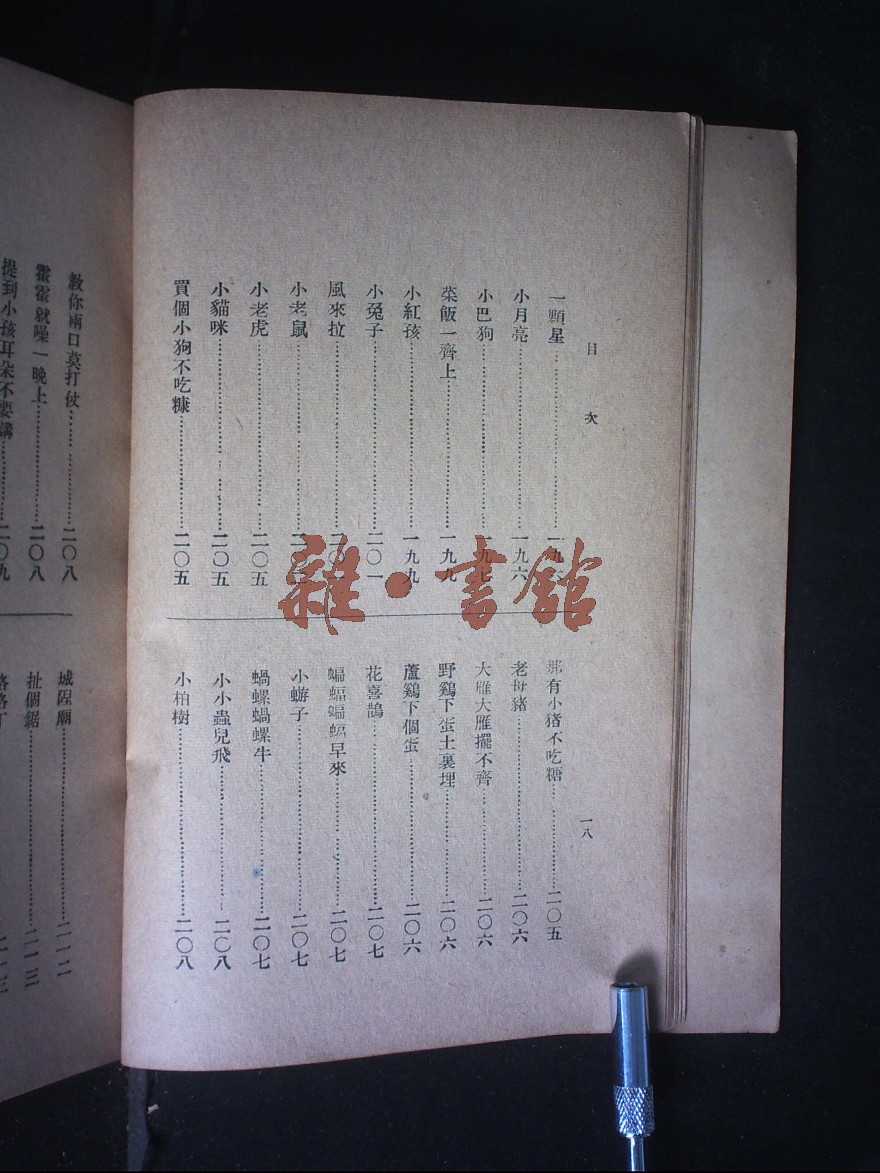 目次
一八
一顆星
小月亮……一九六
小巴狗……一九七
菜飯一齊上……一九九
小紅孩……一九九
小兔子……二〇一
風來拉
小老鼠
小老虎……二〇五
小貓咪……二〇五
買個小狗不吃糠……二〇五
那有小猪不吃糖……二〇五
老母豬……二〇六
大雁大雁擺不齊……二〇六
野鷄下蛋土裏埋……二〇六
蘆鷄下個蛋……二〇六
花喜鵲……二〇七
蝙蝠蝙蝠早來……二〇七
小蝣子……二〇七
蝸螺蝸螺牛……二〇七
小小蟲兒飛……二〇八
小柏樹……二〇八
教你兩口莫打仗……二〇八
霍霍就噪一晚上……二〇八
提到小孩耳朵不要講……二〇九
城隍廟……二一二
扯個鋸……二一三
雜·書館